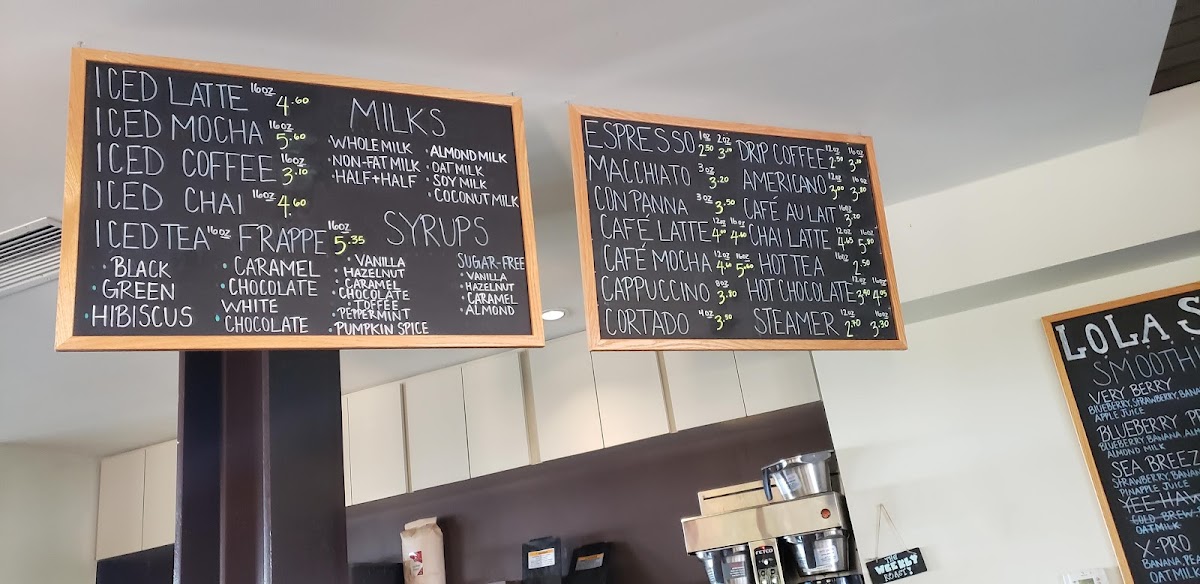 ICED LATTE 16oz 4.60
ICED MOCHA 16oz 5.60
ICED COFFEE 16oz 3.10
ICED CHAI 16oz 4.60
ICED TEA 16oz
• BLACK
• GREEN
• HIBISCUS
FRAPPE 16oz 5.35
• CARAMEL
• CHOCOLATE
• WHITE
CHOCOLATE
MILKS
• WHOLE MILK
• NON-FAT MILK
• HALF+HALF
• ALMOND MILK
• OAT MILK
• SOY MILK
• COCONUT MILK
SYRUPS
• VANILLA
• HAZELNUT
• CARAMEL
• CHOCOLATE
• TOFFEE
• PEPPERMINT
• PUMPKIN SPICE
SUGAR-FREE
• VANILLA
• HAZELNUT
• CARAMEL
• ALMOND
ESPRESSO 1oz 2oz 2.50
MACCHIATO 3oz 3.20
CON PANNA 3oz 3.50
CAFÉ LATTE 12oz 16oz 4.00 4.60
CAFÉ MOCHA 12oz 16oz 4.60 5.60
CAPPUCCINO 8oz 3.80
CORTADO 4oz 3.50
DRIP COFFEE 12oz 16oz 2.50
AMERICANO 12oz 16oz 3.00 3.80
CAFÉ AU LAIT 16oz 3.20
CHAI LATTE 12oz 16oz 4.65
HOT TEA 16oz 2.50
HOT CHOCOLATE 12oz 16oz
STEAMER 12oz 16oz 2.70 3.30
LOLA S
SMOOTH
VERY BERRY
BLUEBERRY, STRAWBERRY, BANA
APPLE JUICE
BLUEBERRY P
BLUEBERRY, BANANA, ALM
ALMOND MILK
SEA BREEZ
STRAWBERRY, BANAN
PINAPPLE JUICE
YEE HAW
COLD BREW
OATMILK
X-PRO
BANANA, PEA
OATMIL
FETCO
THE
WEEKLY
ROAST